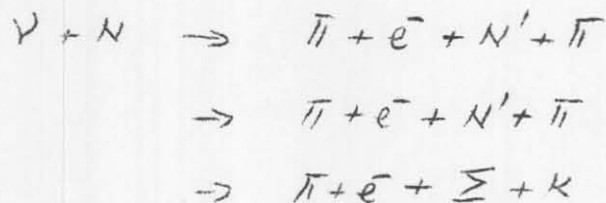 ν + N → π + e⁻ + N' + π
→ π + e⁻ + N' + π
→ π + e⁻ + Σ + K